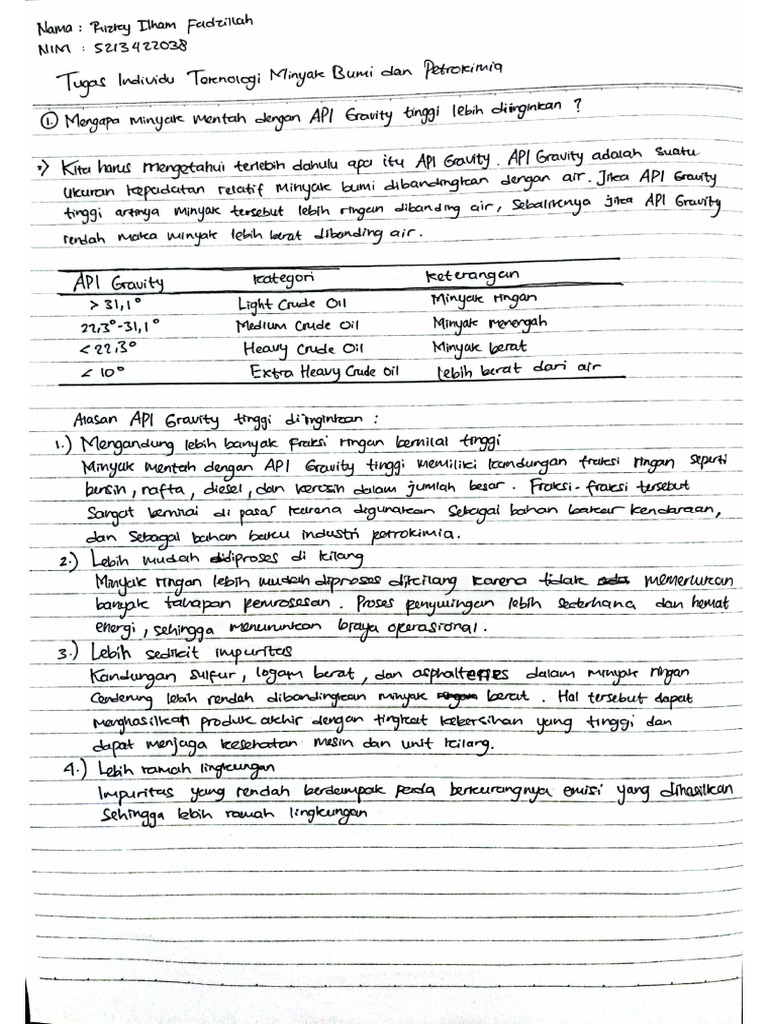 Nama : Rizky Ilham Fadzillah
NIM : 5213422038
Tugas Individu Teknologi Minyak Bumi dan Petrokimia
1. Mengapa minyak mentah dengan API Gravity tinggi lebih diinginkan ?
=> Kita harus mengetahui terlebih dahulu apa itu API Gravity. API Gravity adalah suatu
ukuran kepadatan relatif minyak bumi dibandingkan dengan air. Jika API Gravity
tinggi artinya minyak tersebut lebih ringan dibanding air, Sebaliknya jika API Gravity
rendah maka minyak lebih berat dibanding air.
API Gravity Kategori Keterangan
> 31,1° Light Crude Oil Minyak ringan
22,3°-31,1° Medium Crude Oil Minyak menengah
< 22,3° Heavy Crude Oil Minyak berat
< 10° Extra Heavy Crude Oil Lebih berat dari air
Alasan API Gravity tinggi diinginkan :
1.) Mengandung lebih banyak fraksi ringan bernilai tinggi
Minyak mentah dengan API Gravity tinggi memiliki kandungan fraksi ringan seperti
bensin, nafta, diesel, dan kerosin dalam jumlah besar. Fraksi-fraksi tersebut
Sangat bernilai di pasar karena digunakan Sebagai bahan bakar kendaraan,
dan Sebagai bahan baku industri petrokimia.
2.) Lebih mudah diproses di kilang
Minyak ringan lebih mudah diproses dikilang karena tidak memerlukan
banyak tahapan pemrosesan. Proses penyulingan lebih sederhana dan hemat
energi, sehingga menurunkan biaya operasional.
3.) Lebih sedikit impuritas
Kandungan sulfur, logam berat, dan asphaltenes dalam minyak ringan
Cenderung lebih rendah dibandingkan minyak berat. Hal tersebut dapat
menghasilkan produk akhir dengan tingkat kebersihan yang tinggi dan
dapat menjaga kesehatan mesin dan unit kilang.
4.) Lebih ramah lingkungan
Impuritas yang rendah berdampak pada berkurangnya emisi yang dihasilkan
Sehingga lebih ramah lingkungan